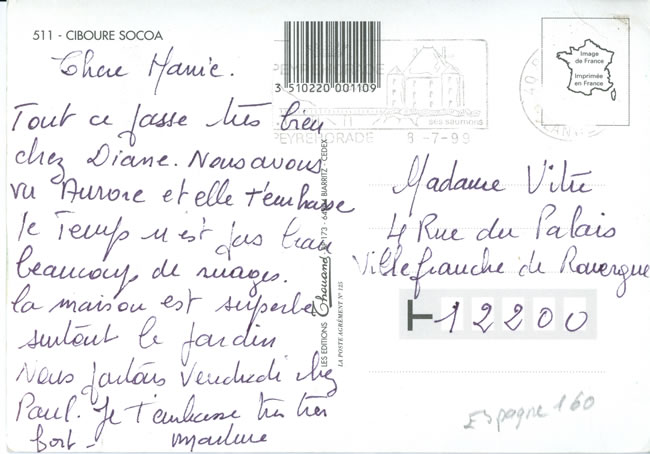 511 - CIBOURE SOCOA
Chere Mamie.
Tout ce passe très bien
chez Diane. Nous avons
vu Aurore et elle t'embrasse
le Temps n'est pas beau
beaucoup de nuages.
la maison est superbe
surtout le jardin
Nous partons Vendredi chez
Paul. Je t'embrasse très très
fort -
3 510220 001109
PEYREHORADE
PEYREHORADE 8-7-99
LES EDITIONS Chouand 173 - 64 BIARRITZ - CEDEX
LA POSTE AGRÉMENT N° 125
Image
de France
Imprimée
en France
Madame Vitré
4 Rue du Palais
Villefranche de Rouergue
12200
Espagne 160